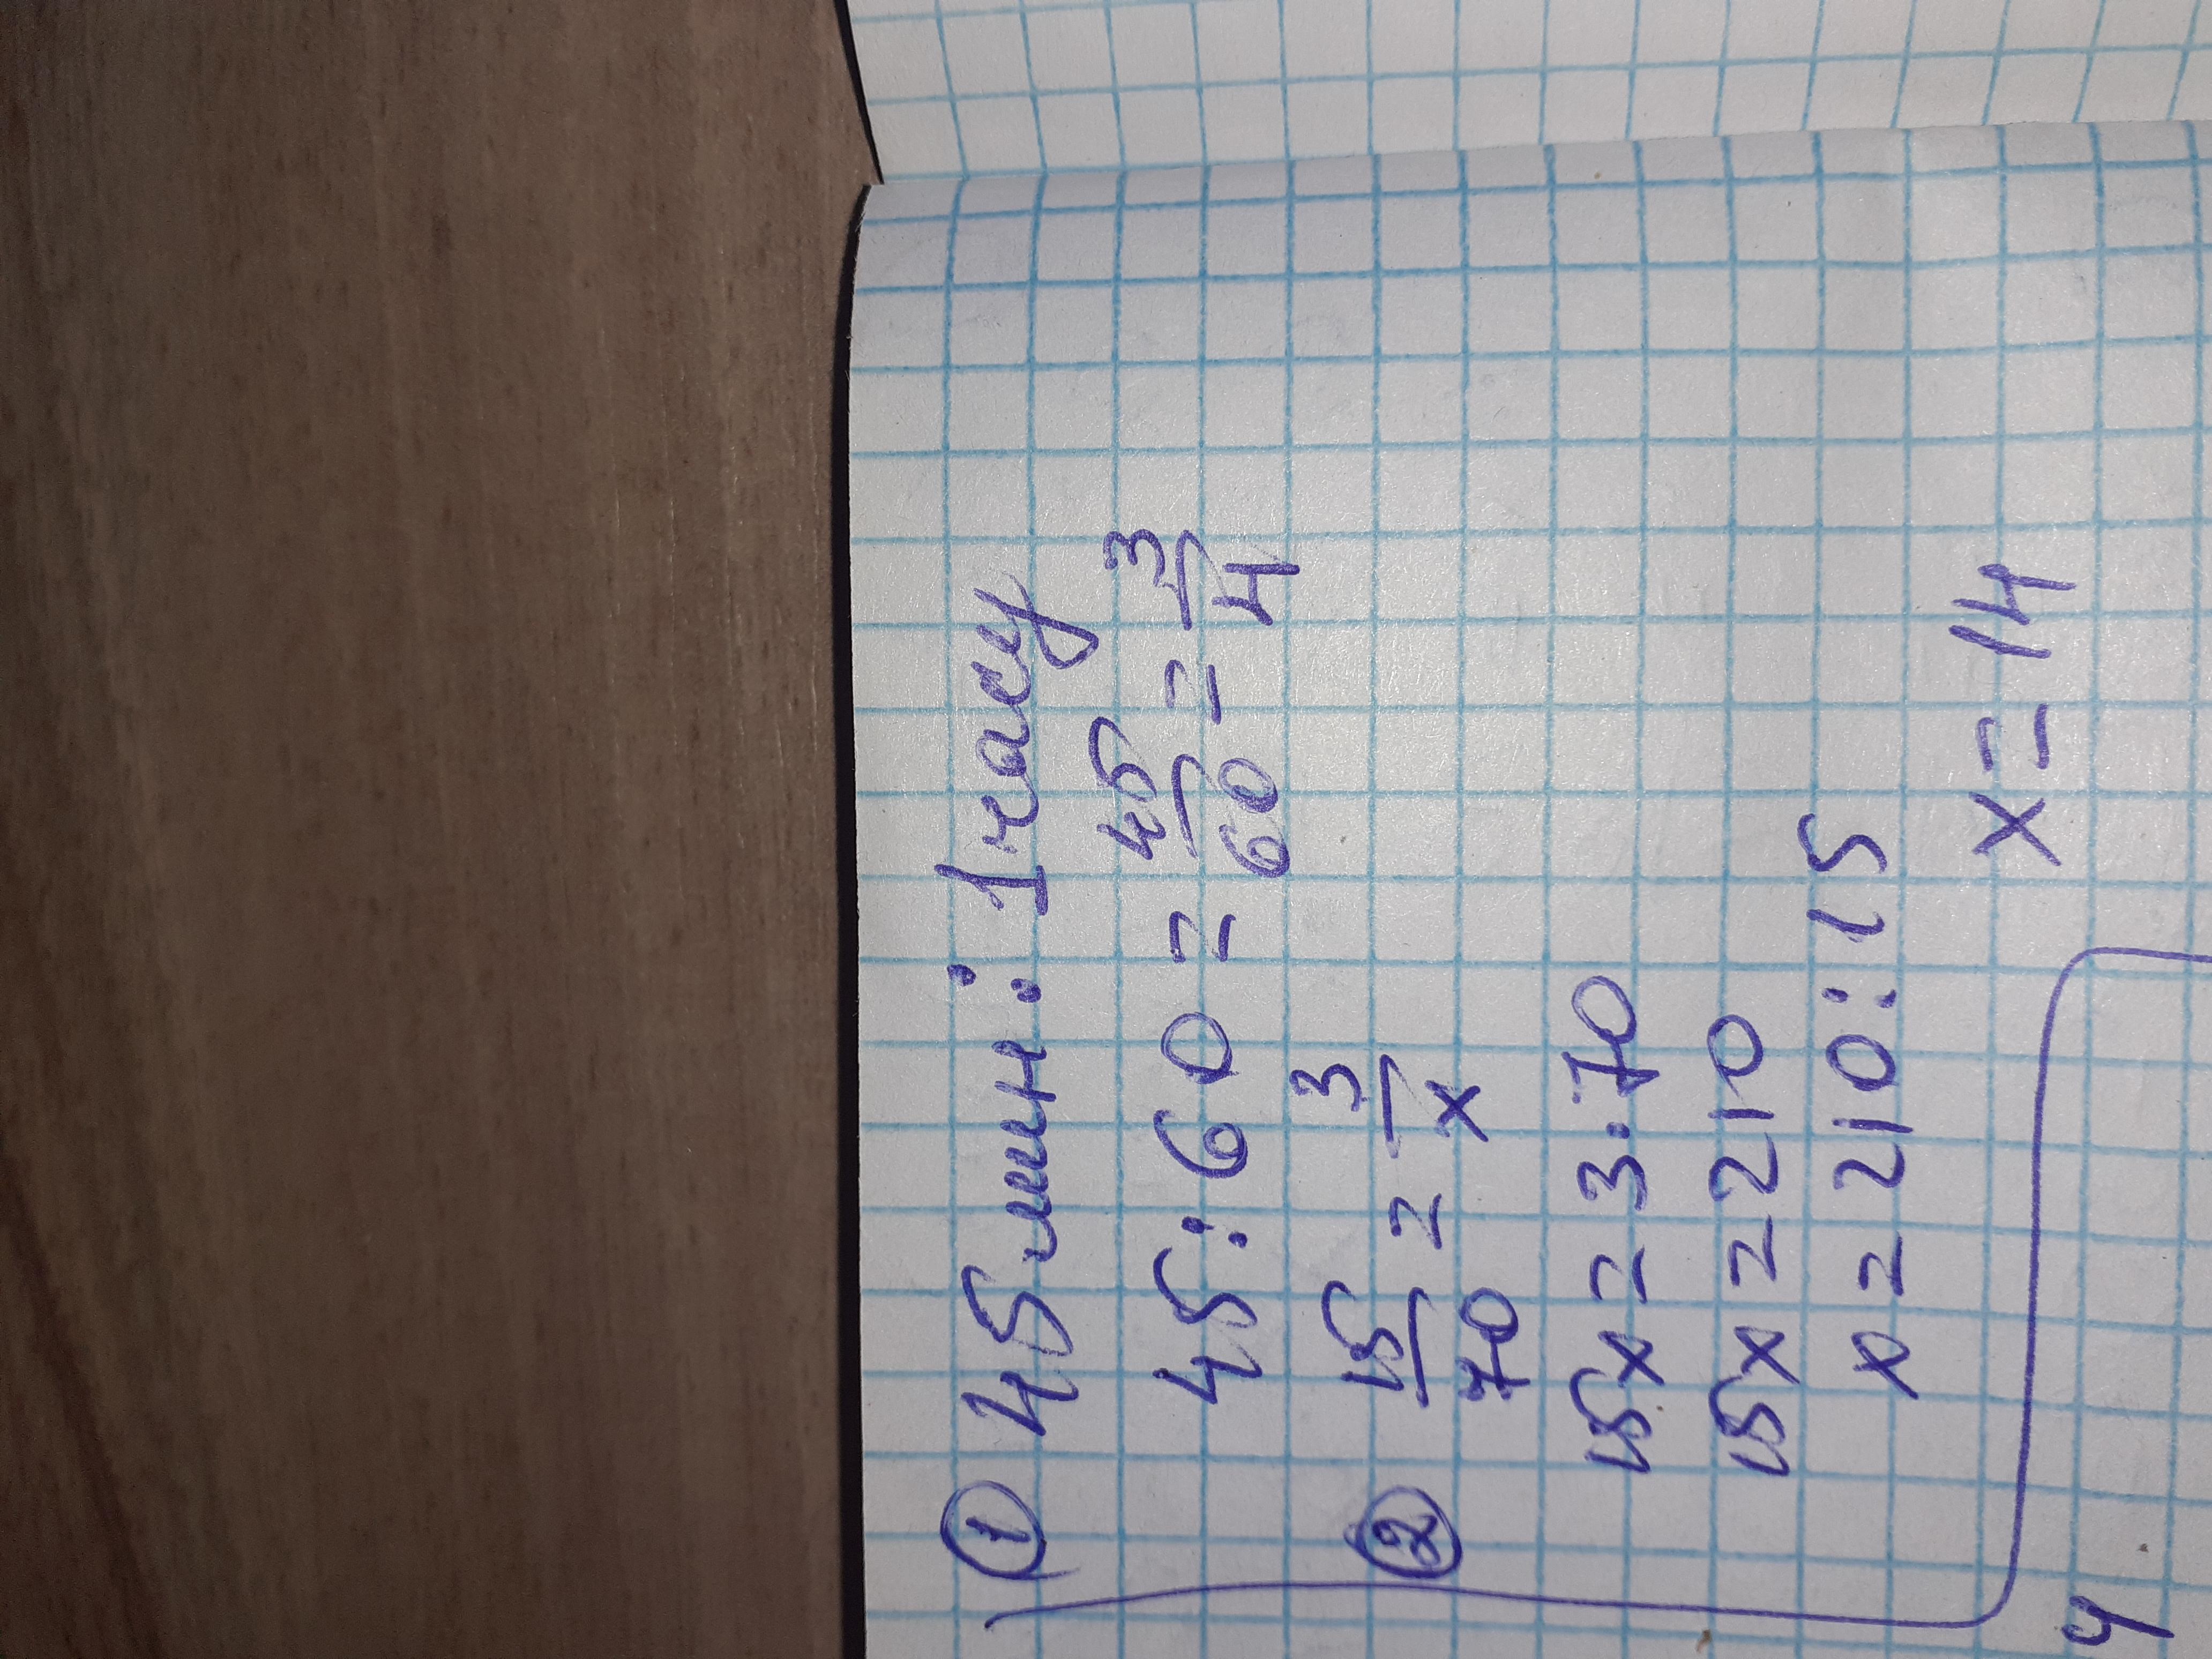 ① 45 мин : 1 часу
45 : 60 = 45/60 = 3/4
② 15/70 = 3/x
15x = 3 · 70
15x = 210
x = 210 : 15
x = 14